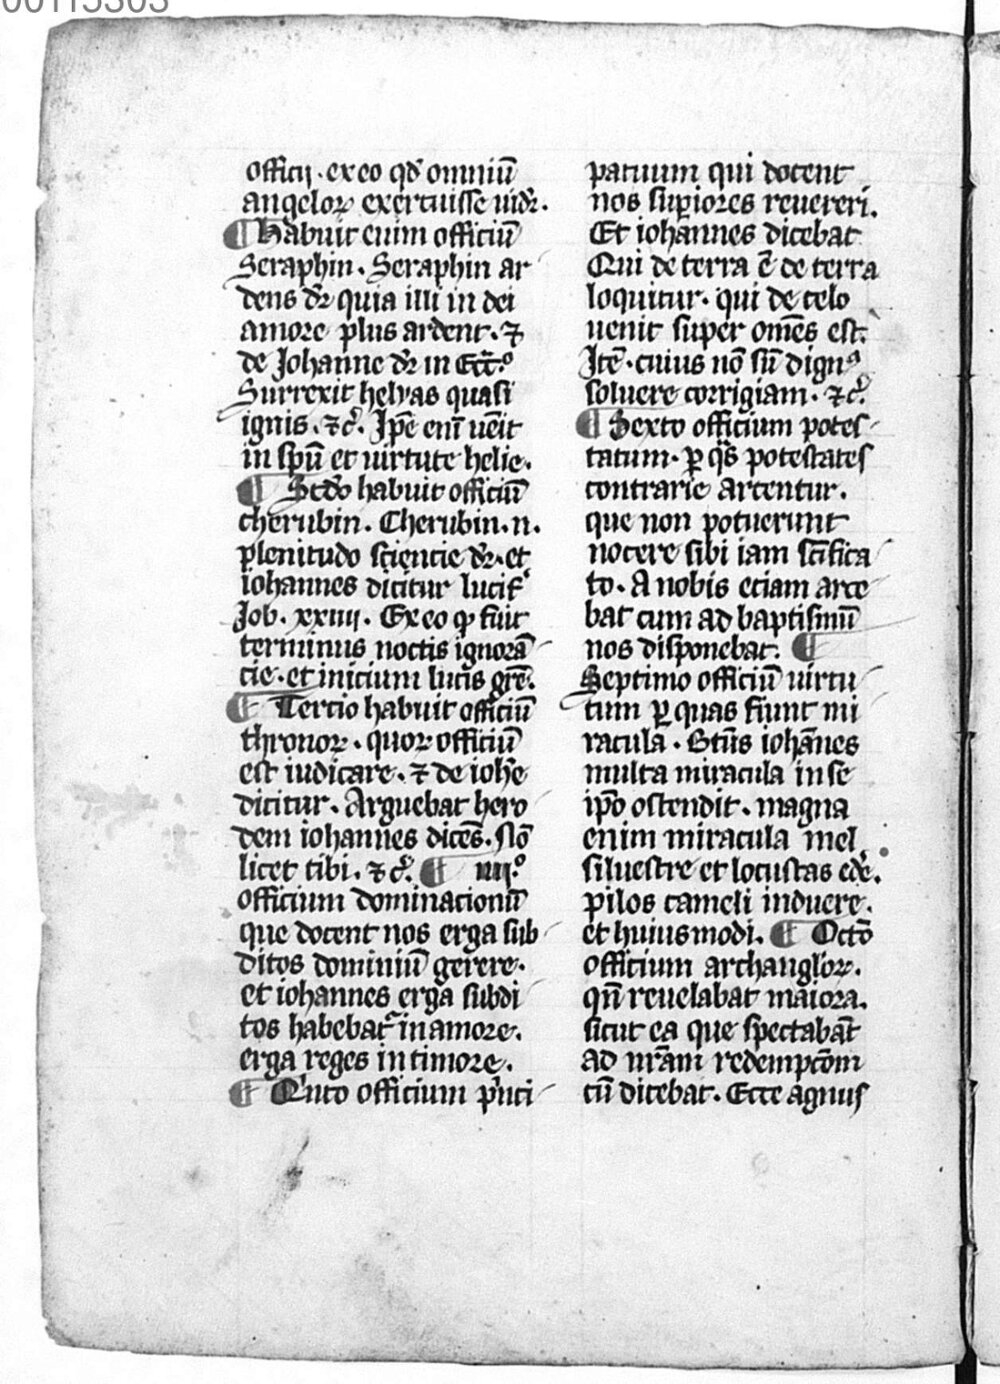 00115303
officij. ex eo qd̛ omniū
angeloꝝ exercuisse uidr̄.
¶ Habuit enim officiū
Seraphin. Seraphin ar
dens dr̄ quia illi in dei
amore plus ardent. ⁊
de Iohanne dr̄ in Ecc̄.º
Surrexit helyas quasi
ignis. ⁊c̄. Ip̄e enī uēit
in sp̄u et uirtute helie.
¶ Scd̄o habuit officiū
cherubin. Cherubin. n.
plenitudo sciencie dr̄. et
iohannes dicitur lucif̛
Job. xxiiii. Ex eo ꝙ fuit
terminus noctis ignorā
cie. et inicium lucis gr̄e.
¶ Tercio habuit officiū
thronoꝝ. quoꝝ officiū
est iudicare. ⁊ de ioh̄e
dicitur. Arguebat hero
dem iohannes dicēs. Nō
licet tibi. ⁊c̄. ¶ iiij.º
officium dominacionū
que docent nos erga sub
ditos dominiū gerere.
et iohannes erga subdi
tos habebat in amore.
erga reges in timore.
¶ Qinto officium pⁱnci
patuum qui docent
nos suꝑiores reuereri.
Et iohannes dicebat
Qui de terra ē de terra
loquitur. qui de celo
uenit super om̄es est.
Itē. cuius nō sū dignꝰ
soluere corrigiam. ⁊c̄.
¶ Sexto officium potes
tatum. ꝑ qͣs potestates
contrarie arcentur.
que non potuerunt
nocere sibi iam sc̄ifica
to. A nobis eciam arce
bat cum ad baptismū
nos disponebat. ¶
Septimo officiū uirtu
tum ꝑ quas fiunt mi
racula. Stūs iohānes
multa miracula in se
ip̄o ostendit. magna
enim miracula mel
siluestre et locustas ede̛.
pilos cameli induere.
et huiusmodi. ¶ Octō
officium archangl̛oꝝ.
qn̄ reuelabat maiora.
sicut ea que spectabāt
ad nr̄am redempcōm
cū dicebat. Ecce agnus